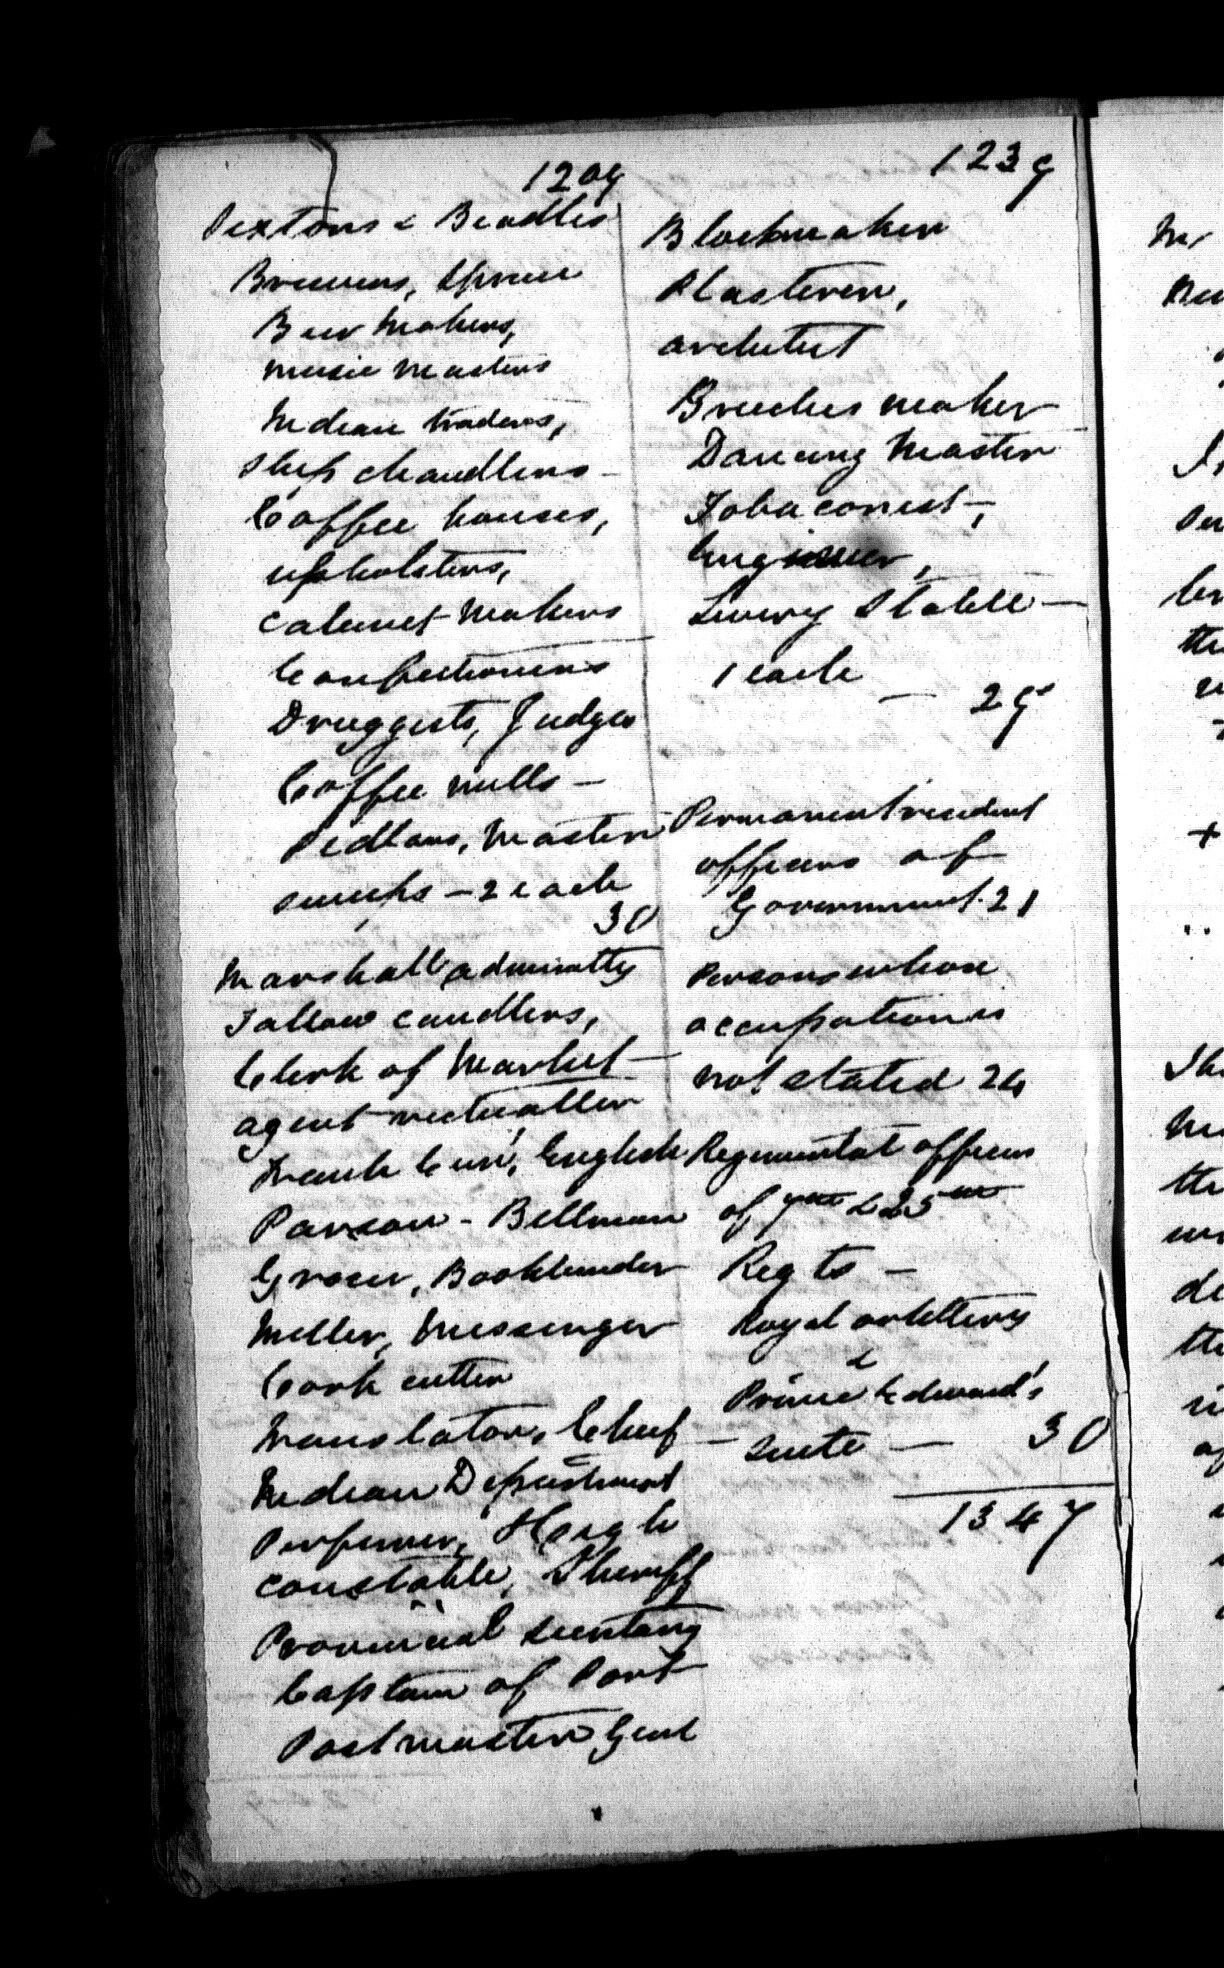 1209
Sextons & Beadles
Brewers, Spruce
Beer Makers,
Music Masters
Indian traders,
Ship chandlers
Coffee houses,
Upholsters,
Cabinet Makers
Confectioners
Druggists, Judges
Coffee mills —
Pedlars, Master
sweeps — 2 each
30
Marshall admiralty
Tallow candlers,
Clerk of Market —
agent victualler
French Curé, English
Parson - Bellman
Grocer, Bookbinder
Miller, Messenger
Cork cutter
Translator, Chief —
Indian Department
Perfumer, High
constable, Sheriff
Provincial Secretary
Captain of Port
Postmaster Genl
1239
Blockmaker
Plasterer,
architect
Breeches maker
Dancing Master
Tobaconist —,
Engineer,
Livery Stable —
1 each
— 29
Permanent resident
officers of
Government 21
Persons whose
occupation is
not stated 24
Regimental officers
of 7th & 25th
Regts —
Royal artillery
&
Prince Edward's
suite — 30
1347